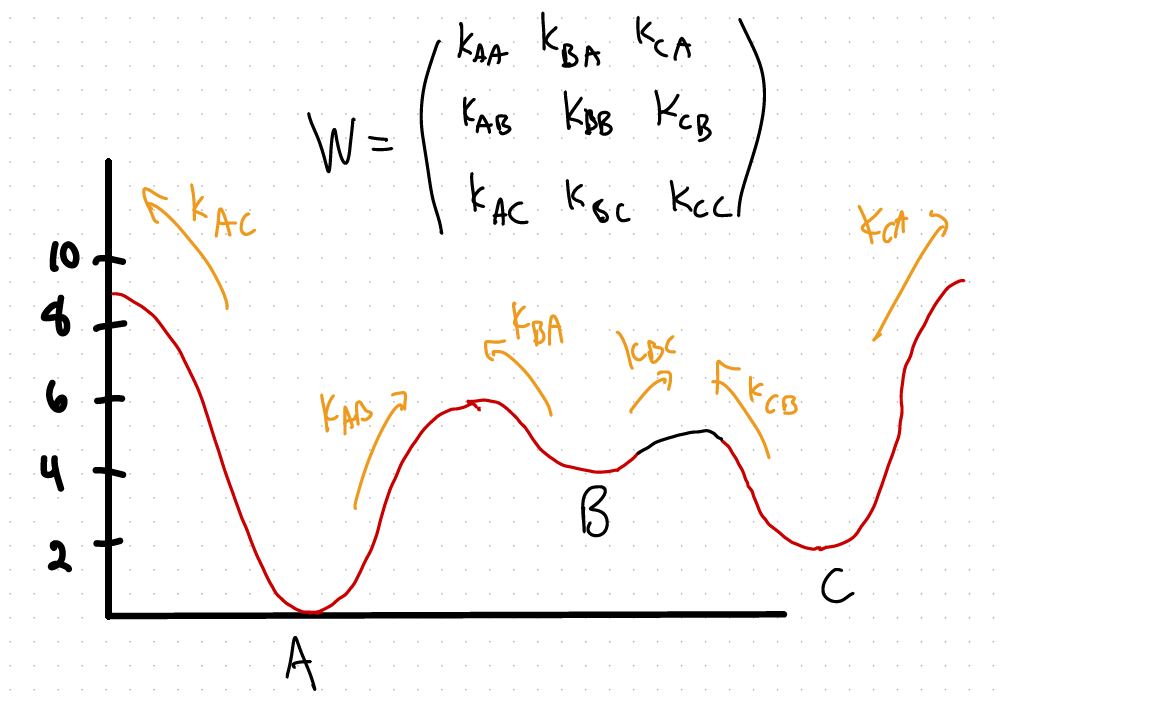 W = ( k_AA k_BA k_CA
k_AB k_BB k_CB
k_AC k_BC k_CC )
k_AC
k_CA
10
8
6
4
2
k_BA
k_BC
k_AB
k_CB
B
C
A